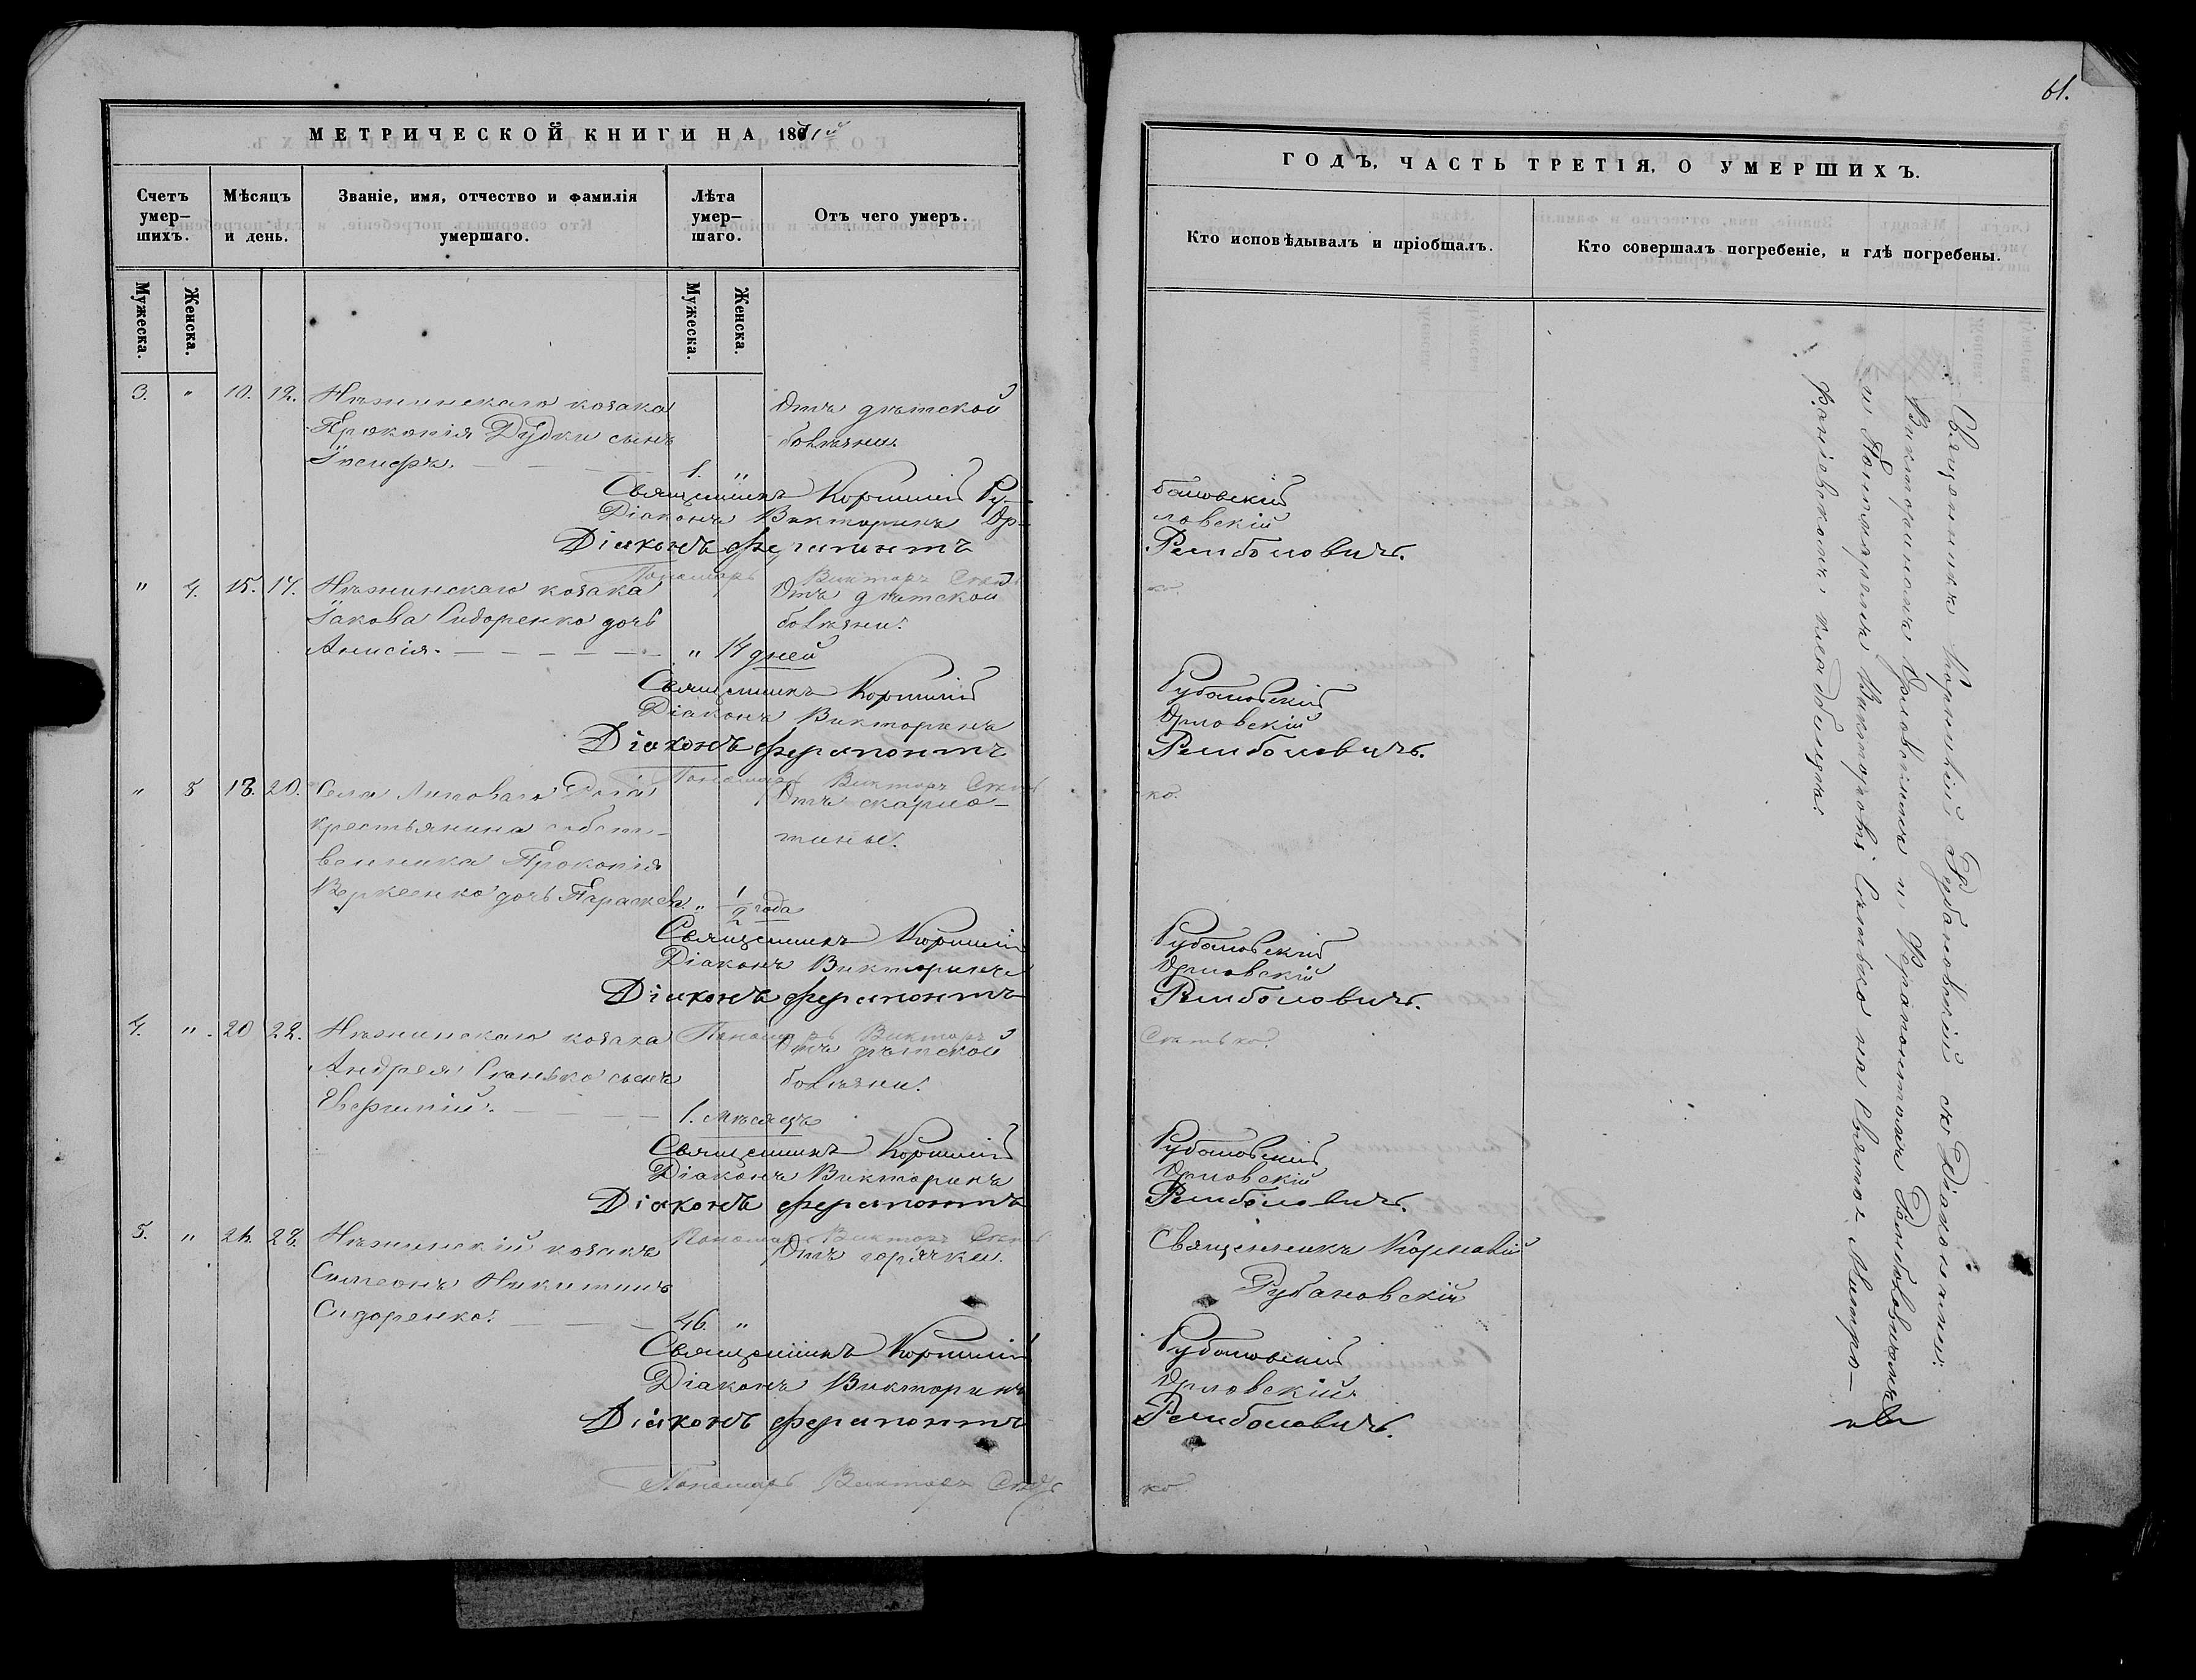 61.
МЕТРИЧЕСКОЙ КНИГИ НА 1871й
ГОДЪ, ЧАСТЬ ТРЕТІЯ, О УМЕРШИХЪ.
Счетъ умер-
шихъ.
Мѣсяцъ
и день.
Званіе, имя, отчество и фамилія
умершаго.
Лѣта
умер-
шаго.
Отъ чего умеръ.
Кто исповѣдывалъ и пріобщалъ.
Кто совершалъ погребеніе, и гдѣ погребены.
Мужеска.
Женска.
Мужеска.
Женска.
3. " 10. 12. Нѣжинскаго козака Отъ дѣтской
Прокопія Дудки сынъ болѣзни.
1. "
Священникъ Корнилій Рубановскій
Діаконъ Викторинъ Орловскій
Діаконъ Ферапонтъ Рамболовичъ.
Пономарь Викторъ
" 4. 15. 17. Нѣжинскаго козака Отъ дѣтской
Іакова Сидоренко дочь болѣзни.
Анисія. " 14 дней
Священникъ Корнилій Рубановскій
Діаконъ Викторинъ Орловскій
Діаконъ Ферапонтъ Рамболовичъ.
Пономарь Викторъ
" 5 18. 20. Села Липоваго Рога Отъ скарла-
крестьянина собст- тины.
венника Прокопія
дочь Параскева. " 1/2 года
Священникъ Корнилій Рубановскій
Діаконъ Викторинъ Орловскій
Діаконъ Ферапонтъ Рамболовичъ.
Пономарь Викторъ
4. " 20 22. Нѣжинскаго козака Отъ дѣтской
Андрея сынъ болѣзни.
1. мѣсяцъ
Священникъ Корнилій Рубановскій
Діаконъ Викторинъ Орловскій
Діаконъ Ферапонтъ Рамболовичъ.
Пономарь Викторъ
5. " 26. 28. Нѣжинскій козакъ Отъ горячки. Священникъ Корнилій
Симеонъ Никитинъ Рубановскій
Сидоренко. 46. "
Священникъ Корнилій Рубановскій
Діаконъ Викторинъ Орловскій
Діаконъ Ферапонтъ Рамболовичъ.
Пономарь Викторъ
Священникъ Корнилій Рубановскій съ Діаконами:
Викториномъ Орловскимъ и Ферапонтомъ Рамболовичемъ
и Пономаремъ Викторомъ на Свято-Митро-
фаніевскомъ кладбищѣ.